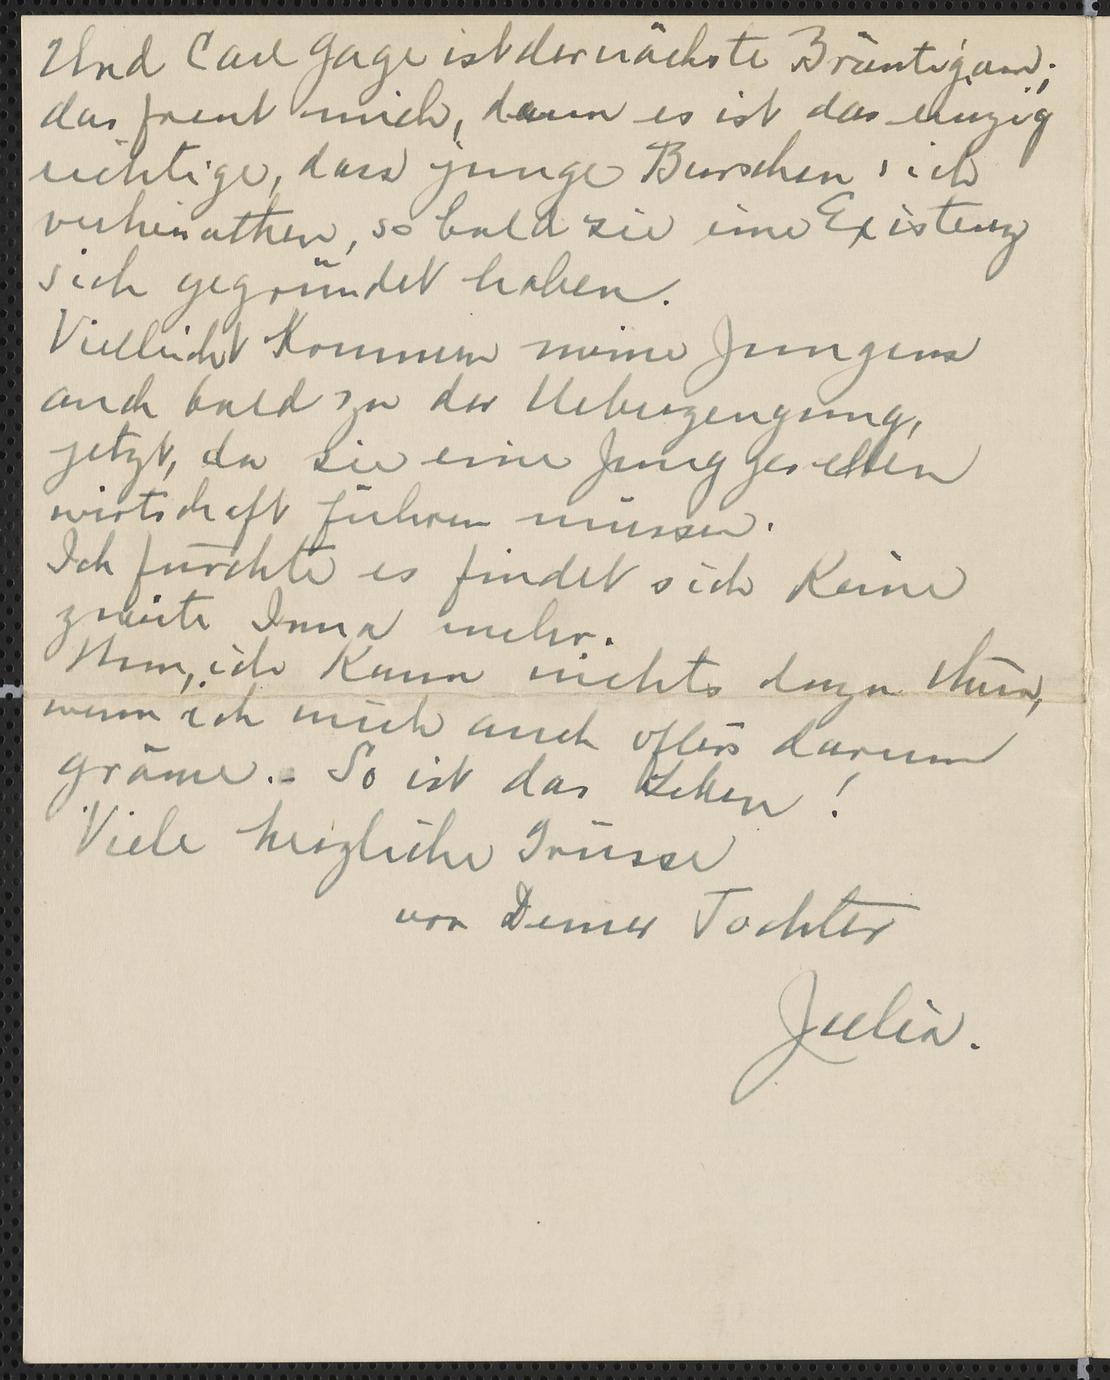 Und Carl Gage ist der nächste Bräutigam;
das freut mich, denn es ist das einzig
richtige, dass junge Burschen sich
verheirathen, so bald sie eine Existenz
sich gegründet haben.
Vielleicht Kommen meine Jungens
auch bald zu der Ueberzeugung,
jetzt, da sie eine Junggesellen
wirtschaft führen müssen.
Ich fürchte es findet sich Keine
zweite Inna mehr.
Nun, ich Kann nichts dazu thun,
wenn ich mich auch öfters darum
gräme. - So ist das Leben!
Viele herzliche Grüsse
von Deiner Tochter
Julia.